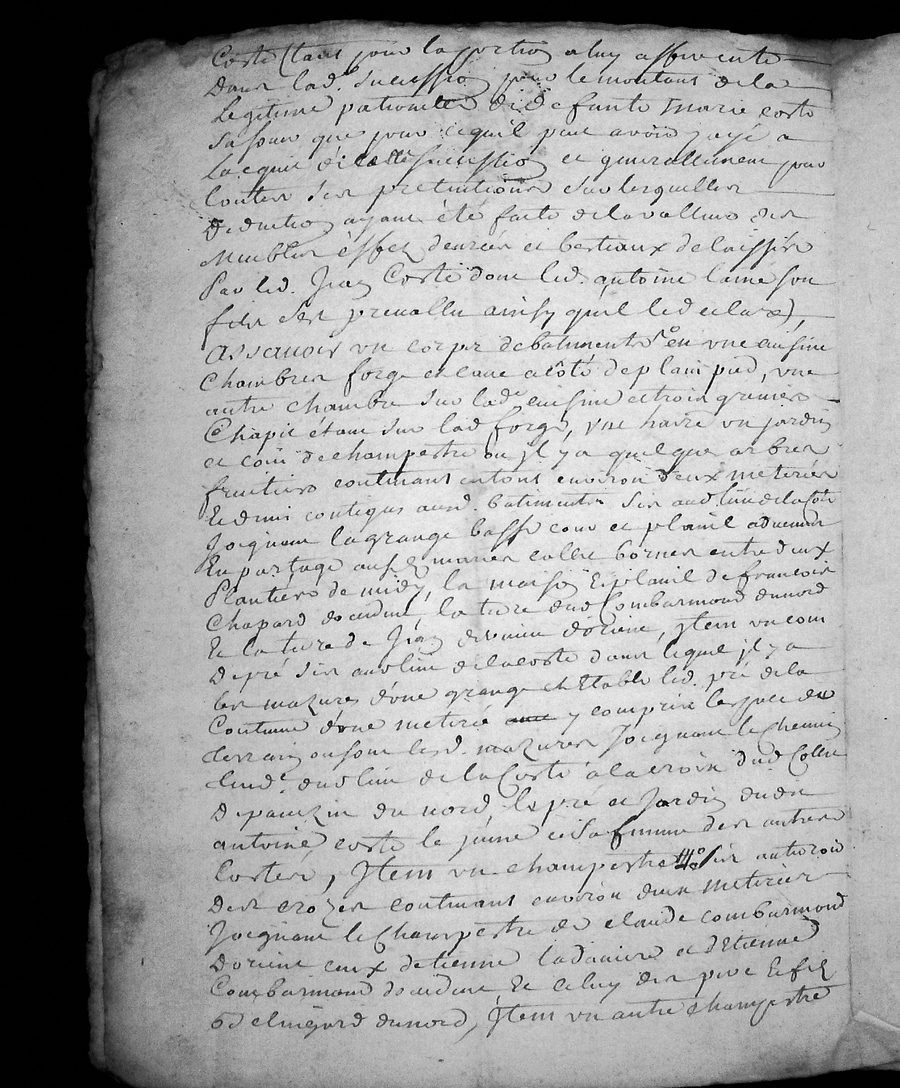 Coste (tant pour la portion a luy afferente
Dans lad. sucession pour le montant de la
Legitime paternelle de defunte Marie coste
Sa soeur que pour ce qu'il peut avoir payé a
Lacquit de ladte sucession et generallement pour
toutes ses pretentions sur lesquelles
Deduction ayant été faite de la valleur des
Meubles effets denrées et bestiaux delaissés
Par led. Jean Coste dont led. antoine lainé son
fils s'est prevallu ainsy qu'il le declare),
assavoir un corps de batiments en une cuisine
Chambres forge et cave a côté de plain pied, une
autre chambre sur lade cuisine et trois greniers
Chapit étant sur lad forge, une haire un jardin
et coin de champestre ou jl y a quelques arbres
fruitiers contenant entout environ deux meterées
Et demi contigus auxd. batiments sis aud. lieu de la Coste
Joignant la grange basse cour et plassil advenus
En partage auxd. maries collie bornes entre deux
Plantées de midy, la maison et plassil de francois
Chapard doccident, la terre dud Combarmond du nord
Et la terre de Jean devienne dorient, Jtem un coin
De pré sis aud lieu de la coste dans lequel jl y a
les mazures d'une grange et Etable led. pré de la
Contenue d'une meterée y compris lespace du
terrain ou sont lesd. mazures Joignant le chemin
tend. dud lieu de la Coste a la croix dud Collie
De pauzin du nord les pré et Jardin dudit
antoine coste le jeune et sa femme des autres
Costés, Jtem un champestre 4o sis au teroir
Des crozes contenant environ deux meterées
Joignant le Champestre de claude combarmond
Dorient ceux detienne ladaniere et d'Etienne
Combarmond doccident Et celuy des pere Et fils
du nord, Jtem un autre champestre